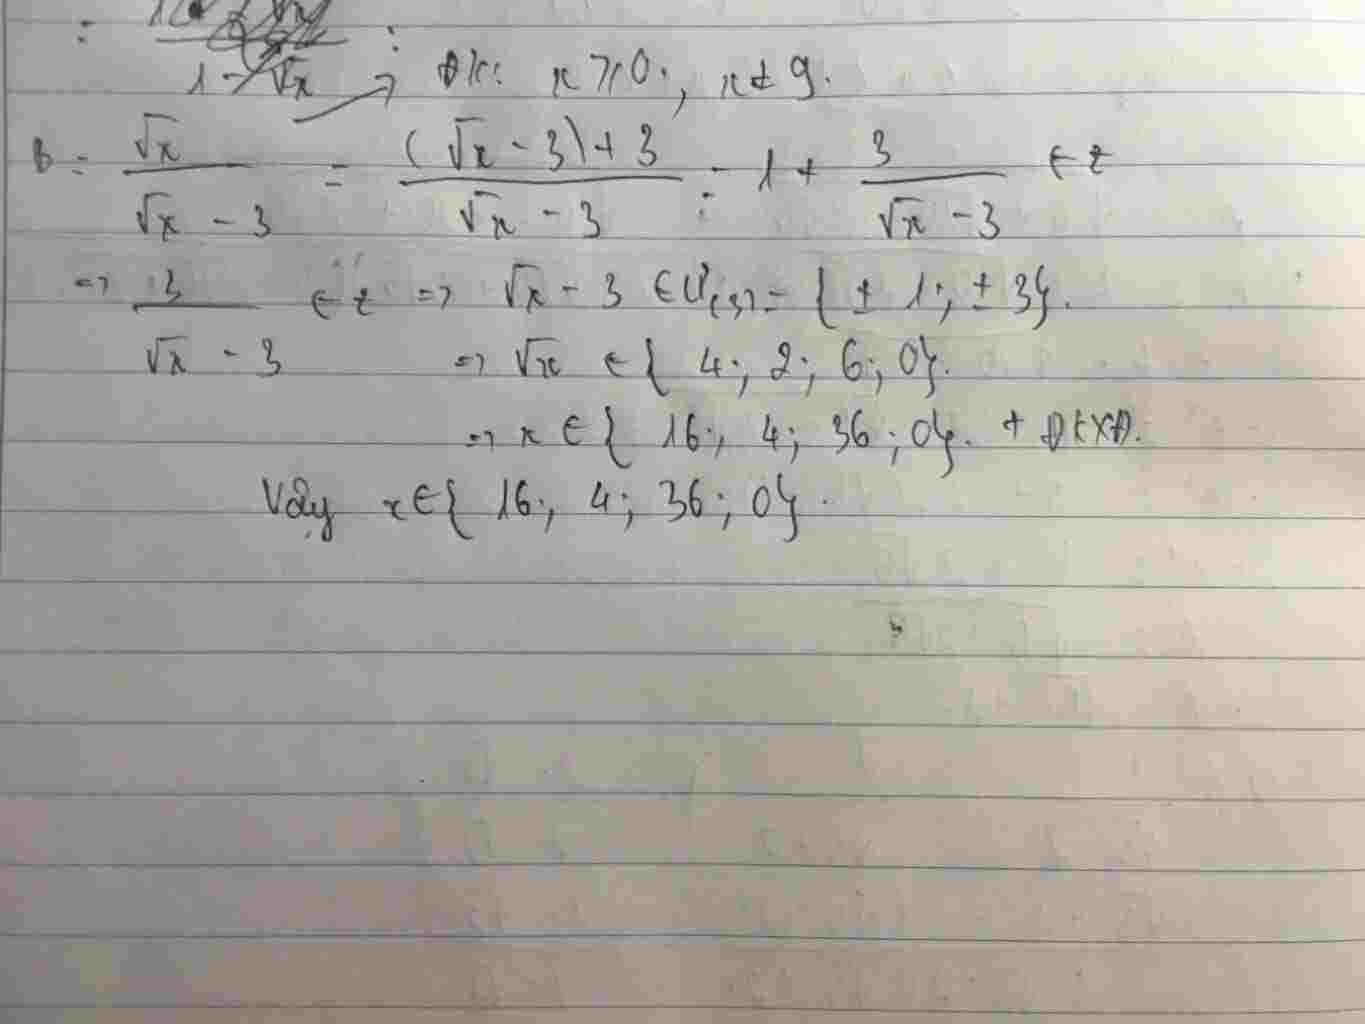 1 - √x → ĐK: x ≥ 0; x ≠ 9.
B = √x / (√x - 3) = ((√x - 3) + 3) / (√x - 3) = 1 + 3 / (√x - 3) ∈ Z
=> 3 / (√x - 3) ∈ Z => √x - 3 ∈ Ư(3) = { ± 1; ± 3}.
=> √x ∈ { 4; 2; 6; 0}.
=> x ∈ { 16; 4; 36; 0}. + ĐKXĐ.
Vậy x ∈ { 16; 4; 36; 0}.